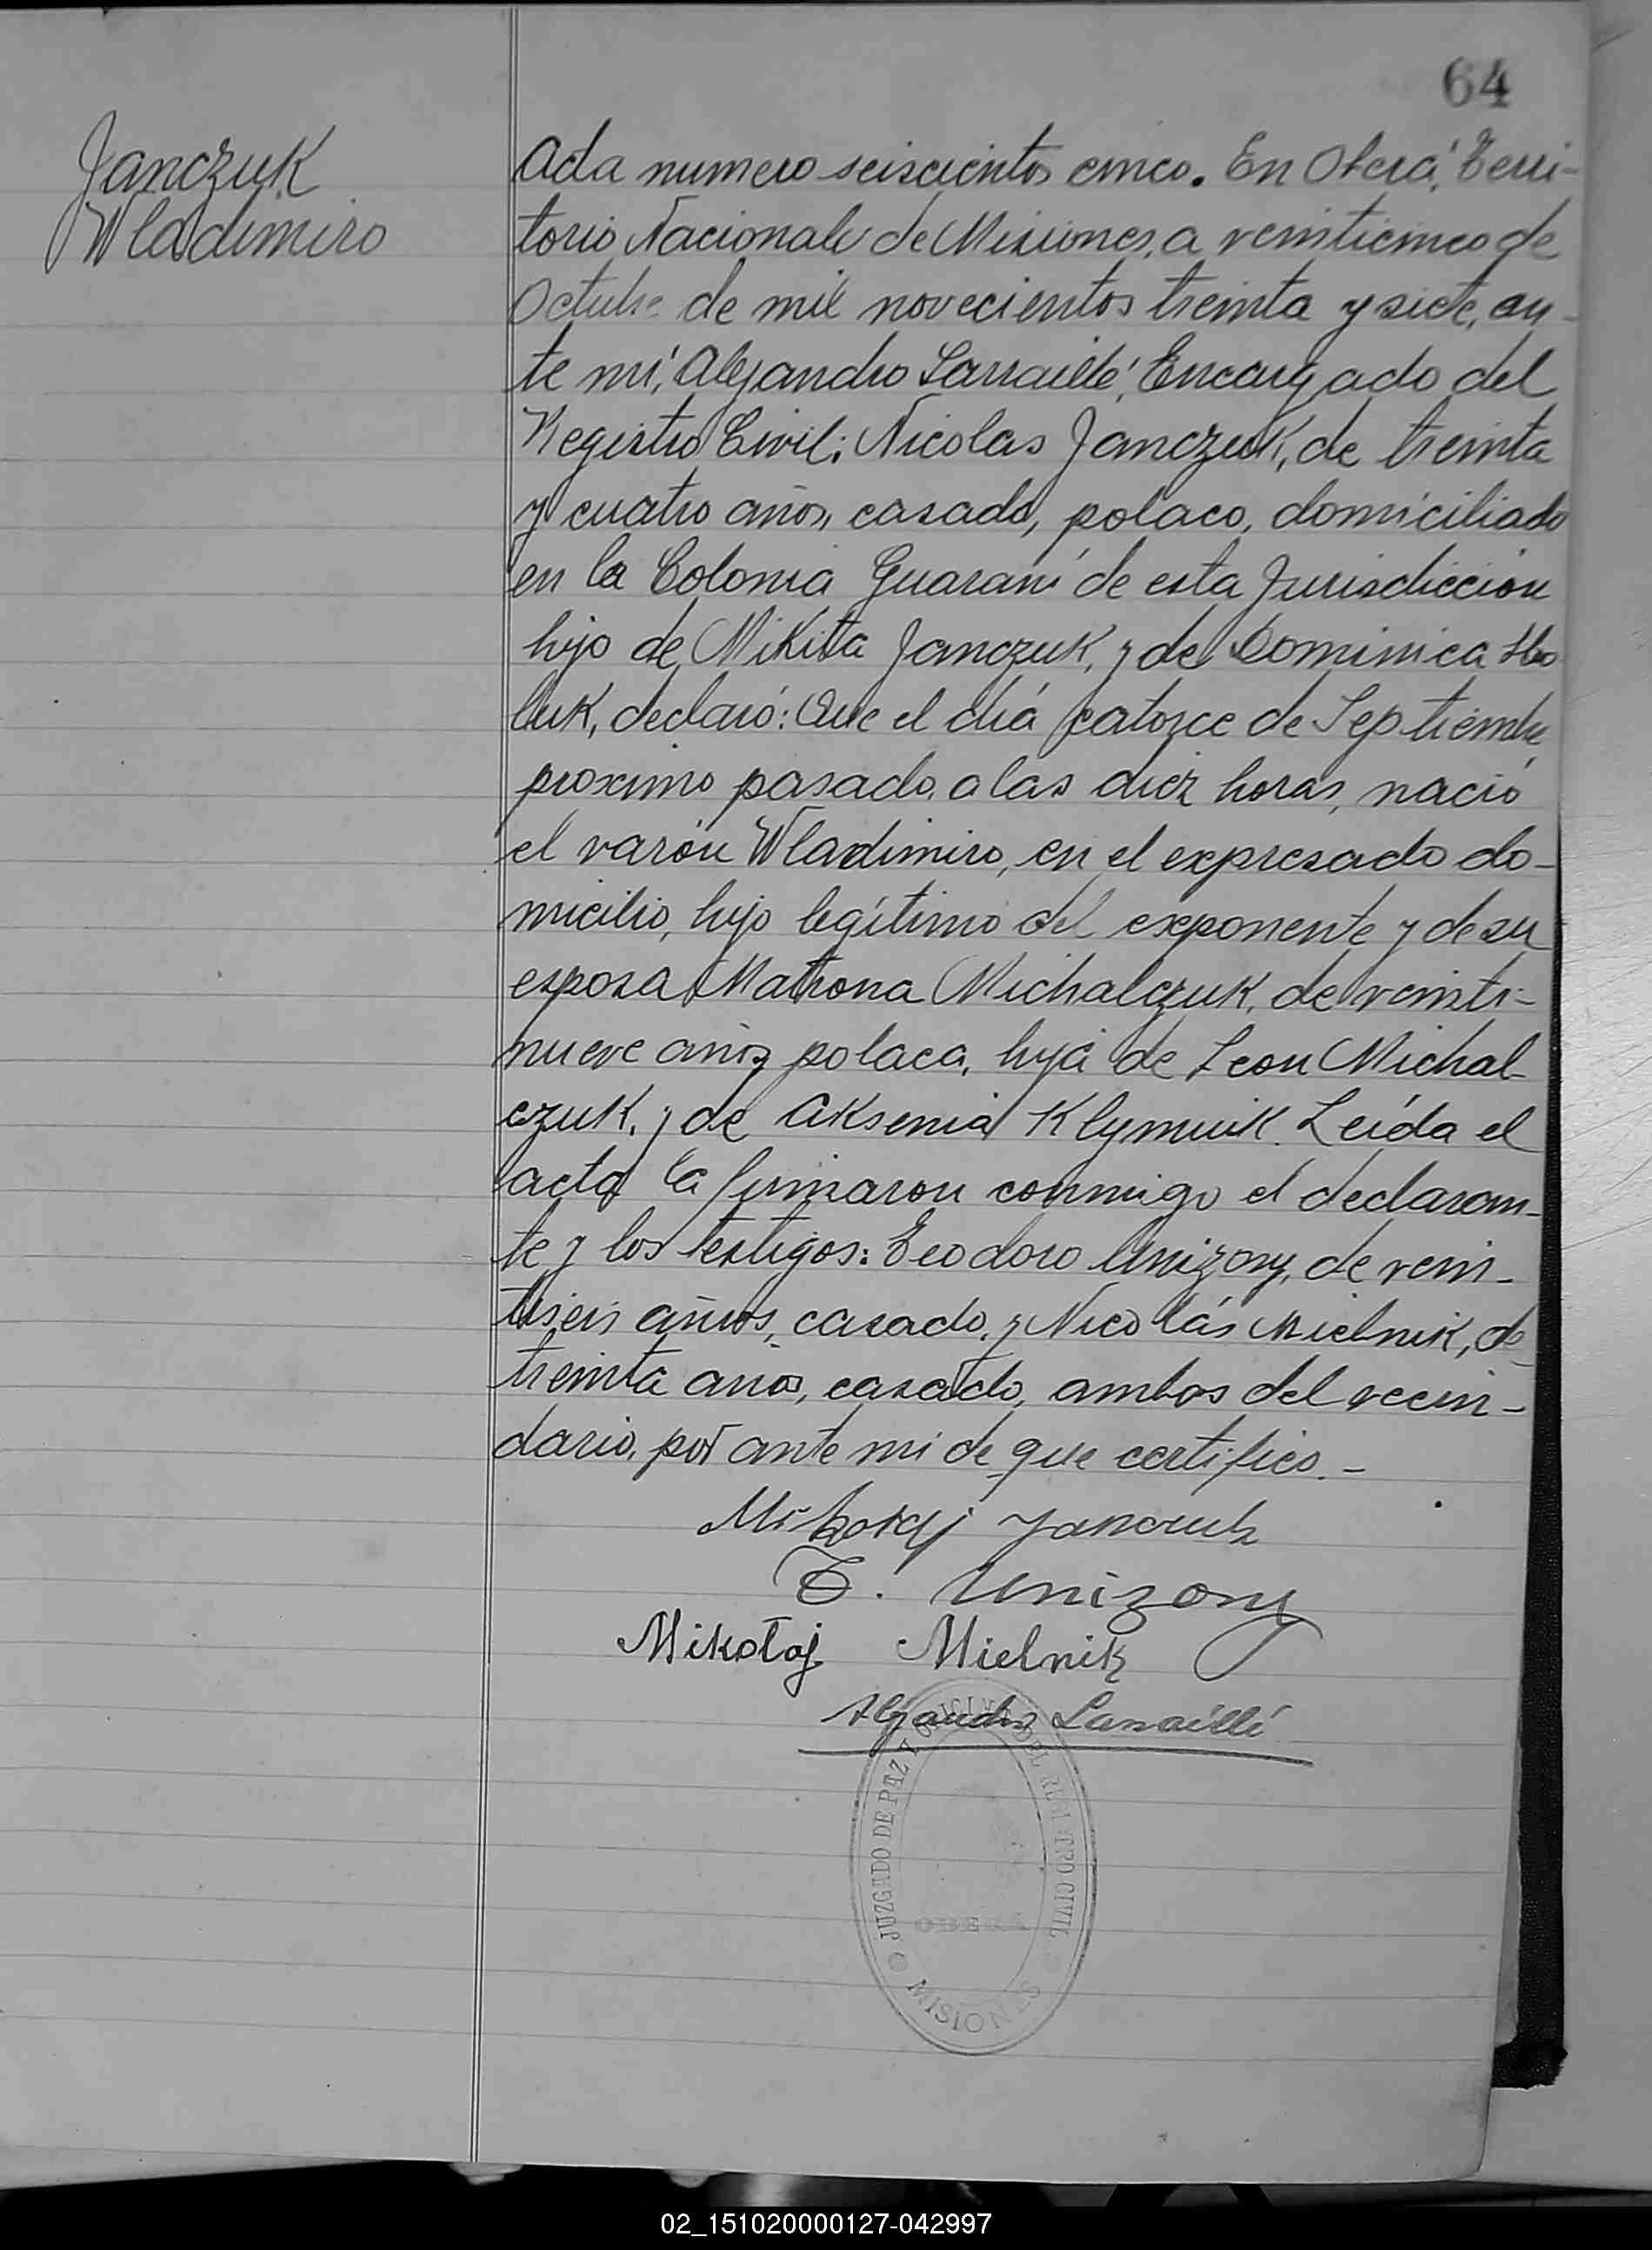 64
Janczuk
Wladimiro
Acta numero seiscientos cinco. En Oberá, Terri-
torio Nacional de Misiones, a veinticinco de
Octubre de mil novecientos treinta y siete, an-
te mí, Alejandro Larraillé, Encargado del
Registro Civil: Nicolas Janczuk, de treinta
y cuatro años, casado, polaco, domiciliado
en la Colonia Guaraní de esta Jurisdicción
hijo de Mikita Janczuk, y de Dominica
luk, declaró: Que el día catorce de Septiembre
proximo pasado, a las diez horas, nació
el varón Wladimiro, en el expresado do-
micilio, hijo legítimo del exponente y de su
esposa Matrona Michalczuk, de veinti-
nueve años, polaca, hija de Leon Michal-
czuk, y de Aksenia Klymiuk. Leída el
acta la firmaron conmigo el declaran-
te y los testigos: Teodoro Unizony, de vein-
tiseis años, casado, y Nicolás Mielnik, de
treinta años, casado, ambos del vecin-
dario, por ante mi de que certifico.-
Mikołaj Janczuk
T. Unizony
Mikołaj Mielnik
Alejandro Larraillé
JUZGADO DE PAZ Y OFICINA DEL REGISTRO CIVIL
OBERA
MISIONES
02_151020000127-042997